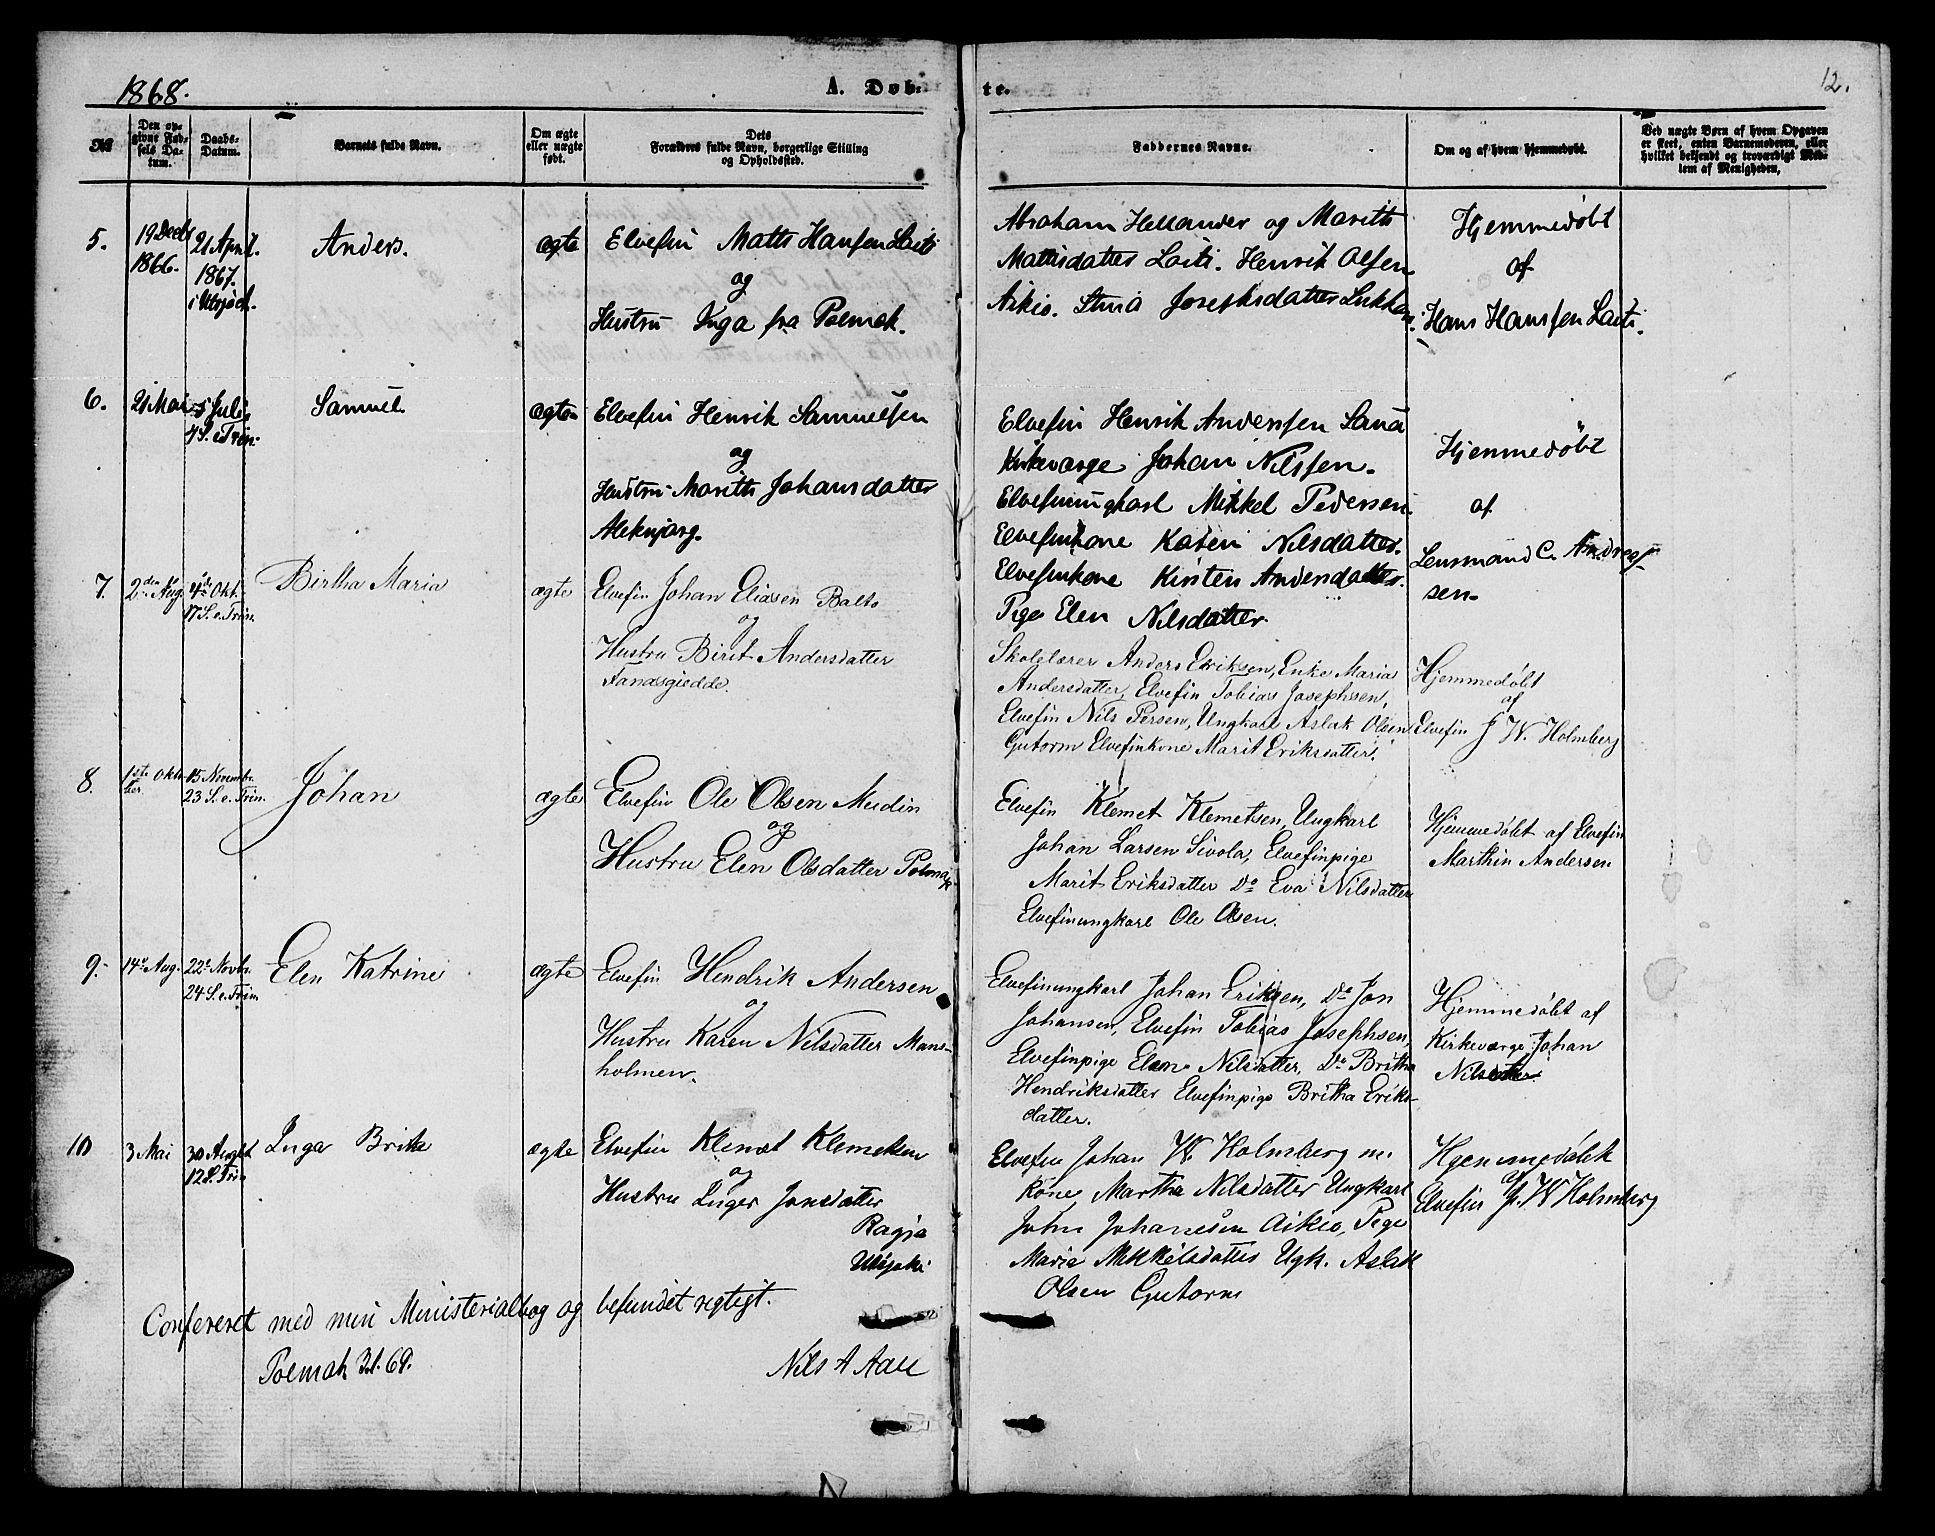 1868.
A. Døb-
te.
12.
No
Den op-
givne Fød-
sels Da-
tum.
Daabs-
Datum.
Barnets fulde Navn.
Om ægte
eller uægte
født.
Dets
Forældres fulde Navn, borgerlige Stilling
og Opholdssted.
Faddernes Navne.
Om og af hvem hjemmedøbt.
Ved uægte Børn af hvem Opgaven
er skeet, enten Barnemoderen, eller
hvilket bekjendt og troværdigt Med-
lem af Menigheden.
5.
19 Decbr
1866.
21 April.
1867.
i Utsjok.
Anders.
ægte
Elvefin Matts Hansen Laiti
og
Hustru Inga fra Polmak.
Abraham Hellander og Marith
Mattisdatter Laiti. Henrik Olsen
Aikio. Stina Josephsdatter Lukkari.
Hjemmedøbt
af
Hans Hansen Laiti.
6.
21 Mai
5 Juli
4 S. e. Trin.
Samuel.
ægte
Elvefin Henrik Samuelsen
og
Hustru Marith Johansdatter
Aleknjarg.
Elvefin Henrik Andersen Sana
Kirkeværge Johan Nilsen.
Elvefinungkarl Mikkel Pedersen
Elvefinkone Karen Nilsdatter.
Elvefinkone Kirsten Andersdatter.
Pige Elen Nilsdatter.
Hjemmedøbt
af
Lensmand C. Andreas-
sen.
7.
2den Aug.
4de Okt.
17 S. e. Trin.
Birtha Maria
ægte
Elvefin Johan Eliasen Balto
og
Hustru Birit Andersdatter
Fandsgiedde.
Skolelærer Anders Eriksen, Enke Maria
Andersdatter, Elvefin Tobias Josephsen,
Elvefin Nils Persen, Ungkarl Aslak Olsen
Gutorm Elvefinkone Marit Eriksdatter.
Hjemmedøbt
af
Elvefin J W. Holmberg
8.
1ste Okto-
ber.
15 Novembr.
23 S. e. Trin.
Johan
ægte
Elvefin Ole Olsen Mudin
og
Hustru Elen Olsdatter Polmak
Elvefin Klemet Klemetsen, Ungkarl
Johan Larsen Sivola, Elvefinpige
Marit Eriksdatter Do Eva Nilsdatter
Elvefinungkarl Ole Olsen.
Hjemmedøbt af Elvefin
Marthin Andersen
9.
14e Aug.
22e Novbr.
24 S. e. Trin
Elen Katrine
ægte
Elvefin Hendrik Andersen
og
Hustru Karen Nilsdatter Mans-
holmen.
Elvefinungkarl Johan Eriksen, Do Jon
Johansen, Elvefin Tobias Josephsen,
Elvefinpige Elen Nilsdatter, Do Britha
Hendriksdatter Elvefinpige Britha Eriks-
datter.
Hjemmedøbt af
Kirkeværge Johan
10
3 Mai
30 August
12 S. Trin
Inga Brita
ægte
Elvefin Klemet Klemetsen
og
Hustru Inger Jonsdatter
Ragja
Utsjoki
Elvefin Johan W. Holmberg m.
kone, Martha Nilsdatter Ungkarl
John Johanesen Aikio, Pige
Marie Mikkelsdatter Ugk. Aslak
Olsen Gutorm
Hjemmedøbt
af
Elvefin J. W Holmberg
Confereret med min Ministerialbog og befundet rigtigt.
Polmak 3.1.69.
Nils A Aall